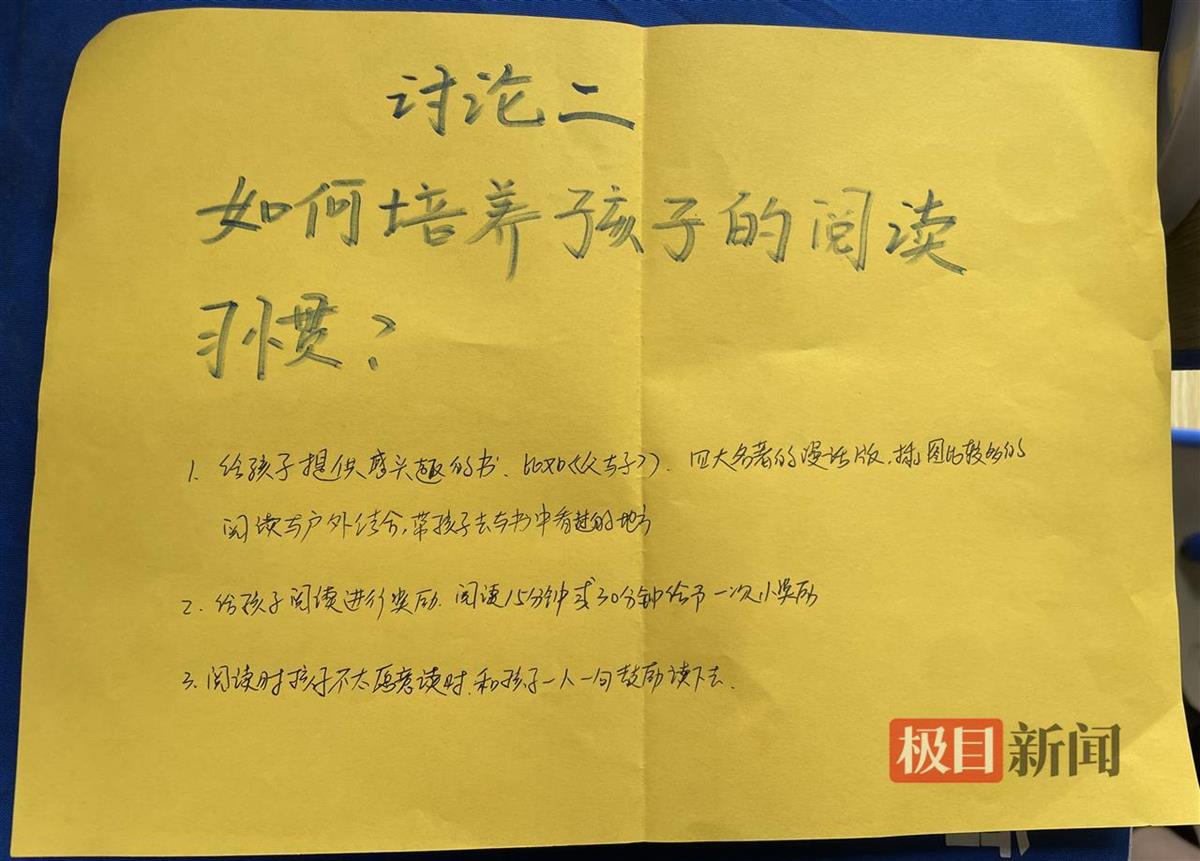 讨论二
如何培养孩子的阅读
习惯?
1. 给孩子提供感兴趣的书、比如《父与子》、四大名著的漫话版,插图比较多的
阅读与户外结合,带孩子去与书中看过的地方
2. 给孩子阅读进行奖励. 阅读15分钟或30分钟给予一次小奖励
3. 阅读时孩子不太愿意读时.和孩子一人一句鼓励读下去.
极目新闻